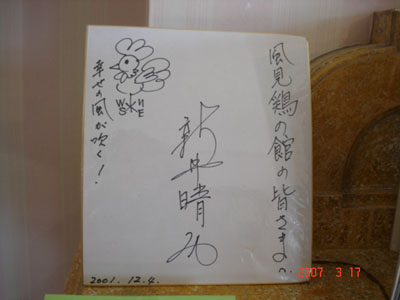 風見鶏の館の皆さまへ
新井晴み
幸せの風が吹く!
W N
S E
2001. 12. 4.
2007 3 17